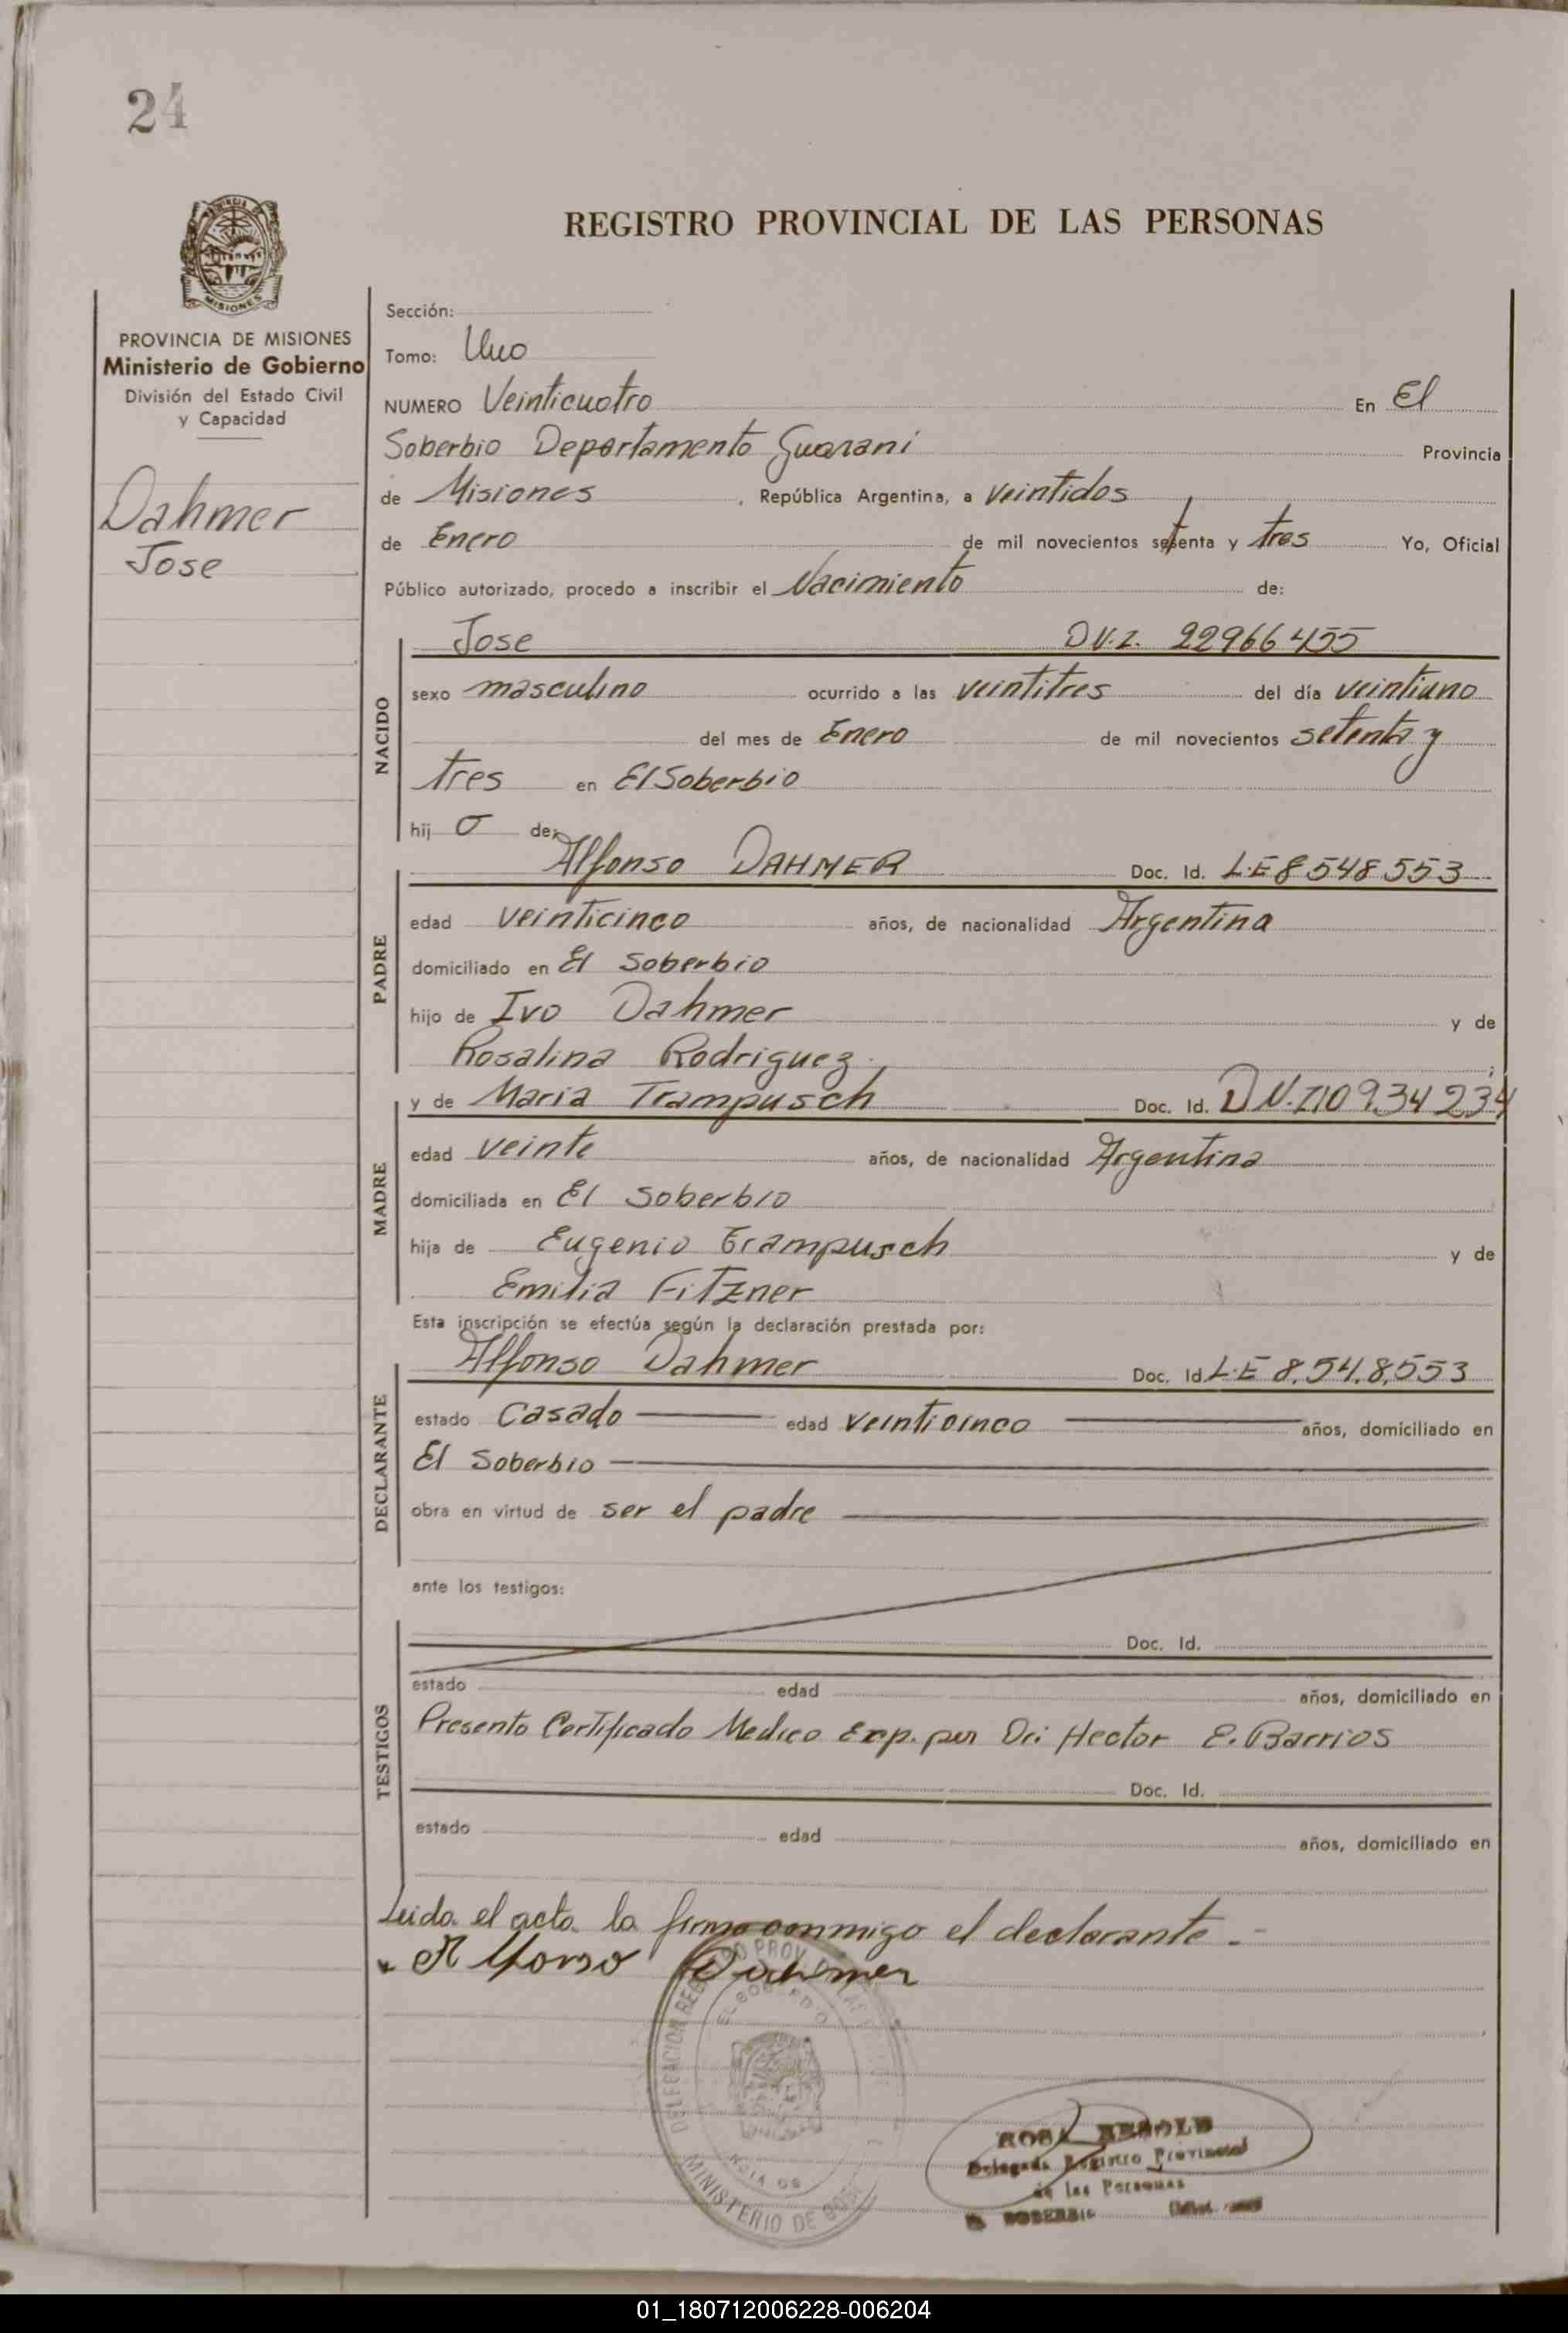 24
REGISTRO PROVINCIAL DE LAS PERSONAS
PROVINCIA DE MISIONES
Ministerio de Gobierno
División del Estado Civil
y Capacidad
Dahmer
Jose
Sección:
Tomo: Uno
NUMERO Veinticuatro En El
Soberbio Departamento Guarani Provincia
de Misiones, República Argentina, a veintidos
de Enero de mil novecientos setenta y tres Yo, Oficial
Público autorizado, procedo a inscribir el Nacimiento de:
NACIDO
Jose D.N.I. 22966455
sexo masculino ocurrido a las veintitres del día veintiuno
del mes de Enero de mil novecientos setenta y
tres en El Soberbio
hij o de:
PADRE
Alfonso DAHMER Doc. Id. L.E 8548553
edad veinticinco años, de nacionalidad Argentina
domiciliado en El Soberbio
hijo de Ivo Dahmer y de
Rosalina Rodriguez.
MADRE
y de Maria Trampusch Doc. Id. D.N.I 10934234
edad veinte años, de nacionalidad Argentina
domiciliada en El Soberbio
hija de Eugenio Trampusch y de
Emilia Fitzner
Esta inscripción se efectúa según la declaración prestada por:
DECLARANTE
Alfonso Dahmer Doc. Id L.E 8.548.553
estado Casado edad veinticinco años, domiciliado en
El Soberbio
obra en virtud de ser el padre
ante los testigos:
TESTIGOS
Doc. Id.
estado edad años, domiciliado en
Presento Certificado Medico Exp. por Dr: Hector E. Barrios
Doc. Id.
estado edad años, domiciliado en
Leida el acta la firma conmigo el declarante.-
Alfonso Dahmer
DELEGACION REGISTRO PROV. DE LAS
EL SOBERBIO
MINISTERIO DE
ROSA
Delegada Registro Provincial
de las Personas
EL SOBERBIO
01_180712006228-006204